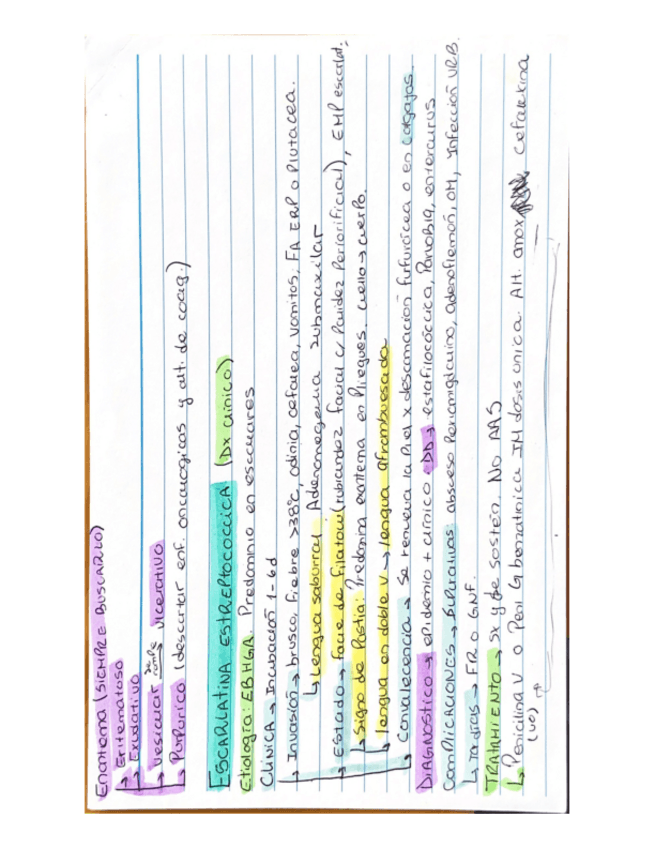 Enantema (SIEMPRE BUSCARLO)
↳ Eritematoso
↳ Exudativo
↳ Vesicular se rompe → Ulcerativo
↳ Purpúrico (descartar enf. oncologicas y alt. de coag.)
ESCARLATINA ESTREPTOCOCCICA (Dx clínico)
Etiologia: EBHGA. Predominio en escolares
CLINICA → Incubación 1-6d
↳ Invasión → brusca, fiebre >38°C, odinia, cefalea, vomitos, FA ERP o Plutacea.
↳ Lengua saburral Adenomegalia submaxilar
↳ Estado → facie de Filatow (rubicundez facial c/ Palidez Periorificial), EMP escarlat.
↳ Signo de Pastia: Predomina exantema en Pliegues. cuello → cuerpo.
↳ lengua en doble V → lengua aframbuesada
↳ Convalecencia → Se renueva la Piel x descamación furfurácea o en colgajos.
DIAGNOSTICO → epidemio + clínico. DD → estafilocóccica, Parvo B19, enterovirus
COMPLICACIONES → Supurativas: absceso Periamigdalino, adenoflemón, OM, Infección
↳ Tardias → FR o GNF.
TRATAMIENTO → Sx y de sostén. No AAS
↳ Penicilina V o Peni G benzatinica IM dosis única. Alt. amox cefalexina
(VO)